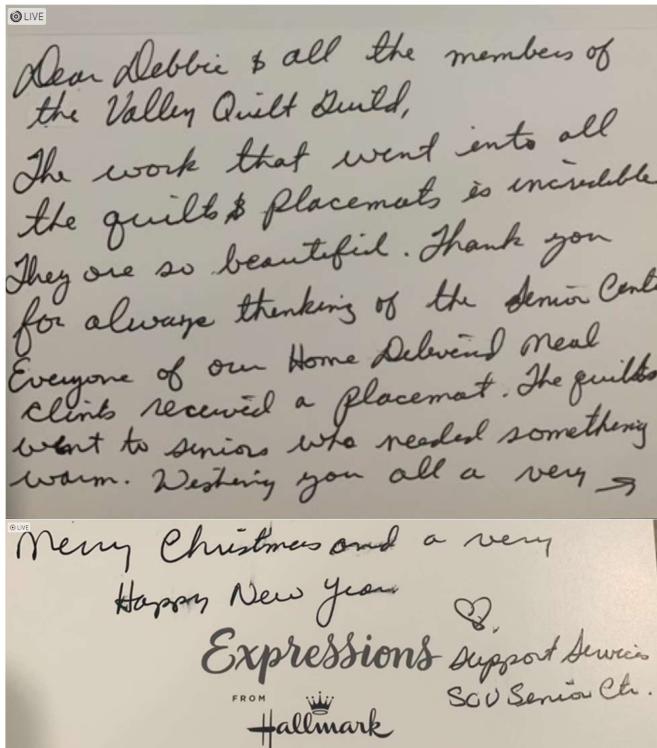 LIVE
Dear Debbie & all the members of
the Valley Quilt Guild,
The work that went into all
the quilts & placemats is incredible
They are so beautiful. Thank you
for always thinking of the Senior Cent
Everyone of our Home Delivered Meal
clients received a placemat. The quilts
went to seniors who needed something
warm. Wishing you all a very →
LIVE
Merry Christmas and a very
Happy New Year
Support Services
SCV Senior Ctr.
Expressions
FROM
Hallmark